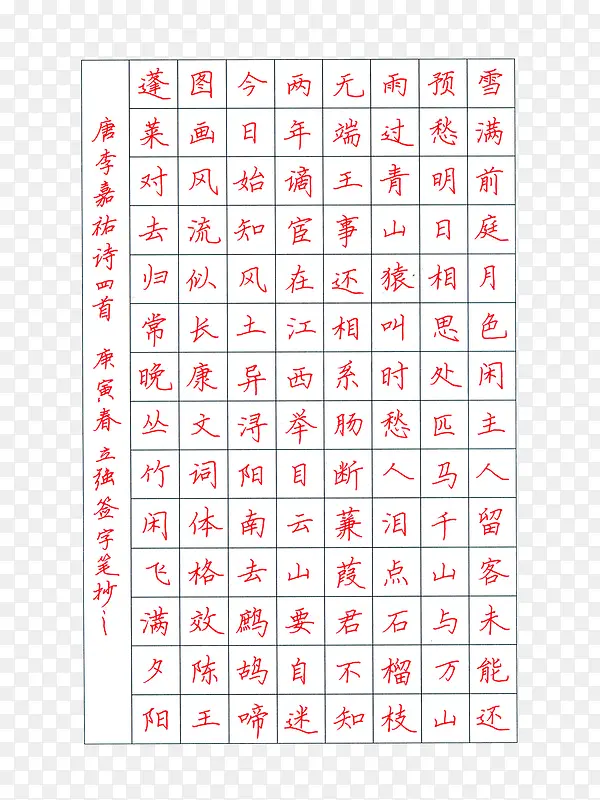 雪满前庭月色闲主人留客未能还
预愁明日相思处匹马千山与万山
雨过青山猿叫时愁人泪点石榴枝
无端王事还相系肠断蒹葭君不知
两年谪宦在江西举目云山要自迷
今日始知风土异浔阳南去鹧鸪啼
图画风流似长康文词体格效陈王
蓬莱对去归常晚丛竹闲飞满夕阳
唐李嘉祐诗四首 庚寅春 立强签字笔抄之